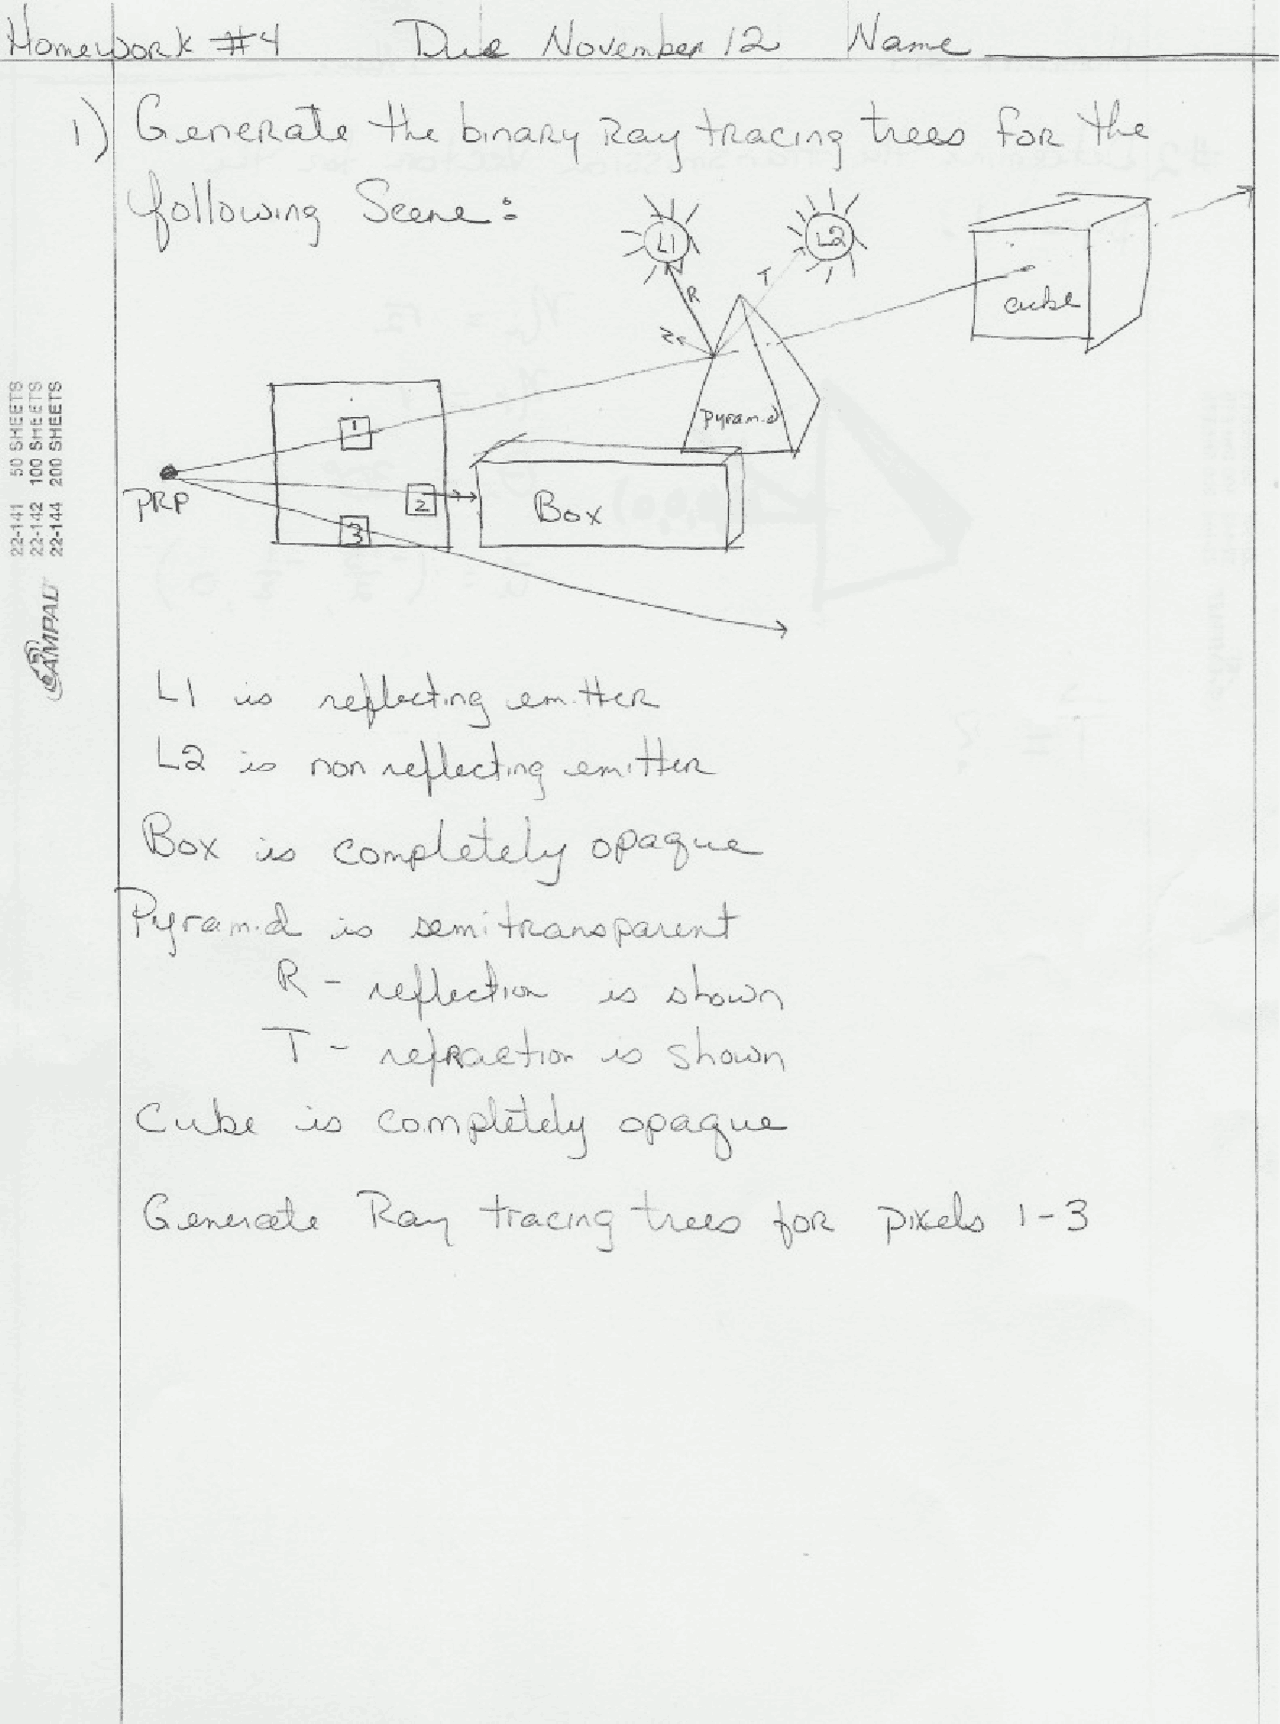 Homework #4 Due November 12 Name
1) Generate the binary Ray tracing trees for the
following Scene:
L1
L2
R
T
N
cube
pyramid
1
PRP
2
3
Box
22-141 50 SHEETS
22-142 100 SHEETS
22-144 200 SHEETS
AMPAD
L1 is reflecting emitter
L2 is non reflecting emitter
Box is completely opaque
Pyramid is semitransparent
R - reflection is shown
T - refraction is shown
Cube is completely opaque
Generate Ray tracing trees for pixels 1-3